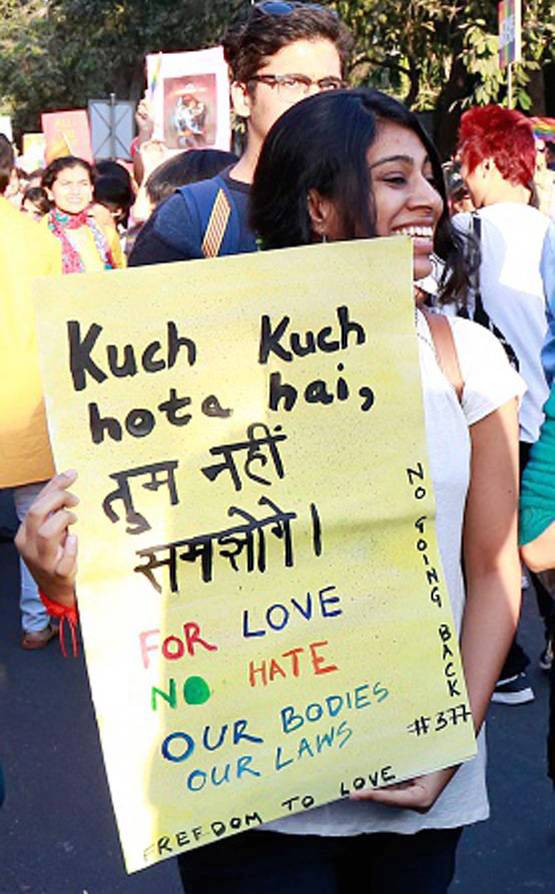 Kuch Kuch
hota hai,
तुम नहीं
समझोगे।
FOR LOVE
NO HATE
OUR BODIES
OUR LAWS
FREEDOM TO LOVE
NO GOING BACK
#377